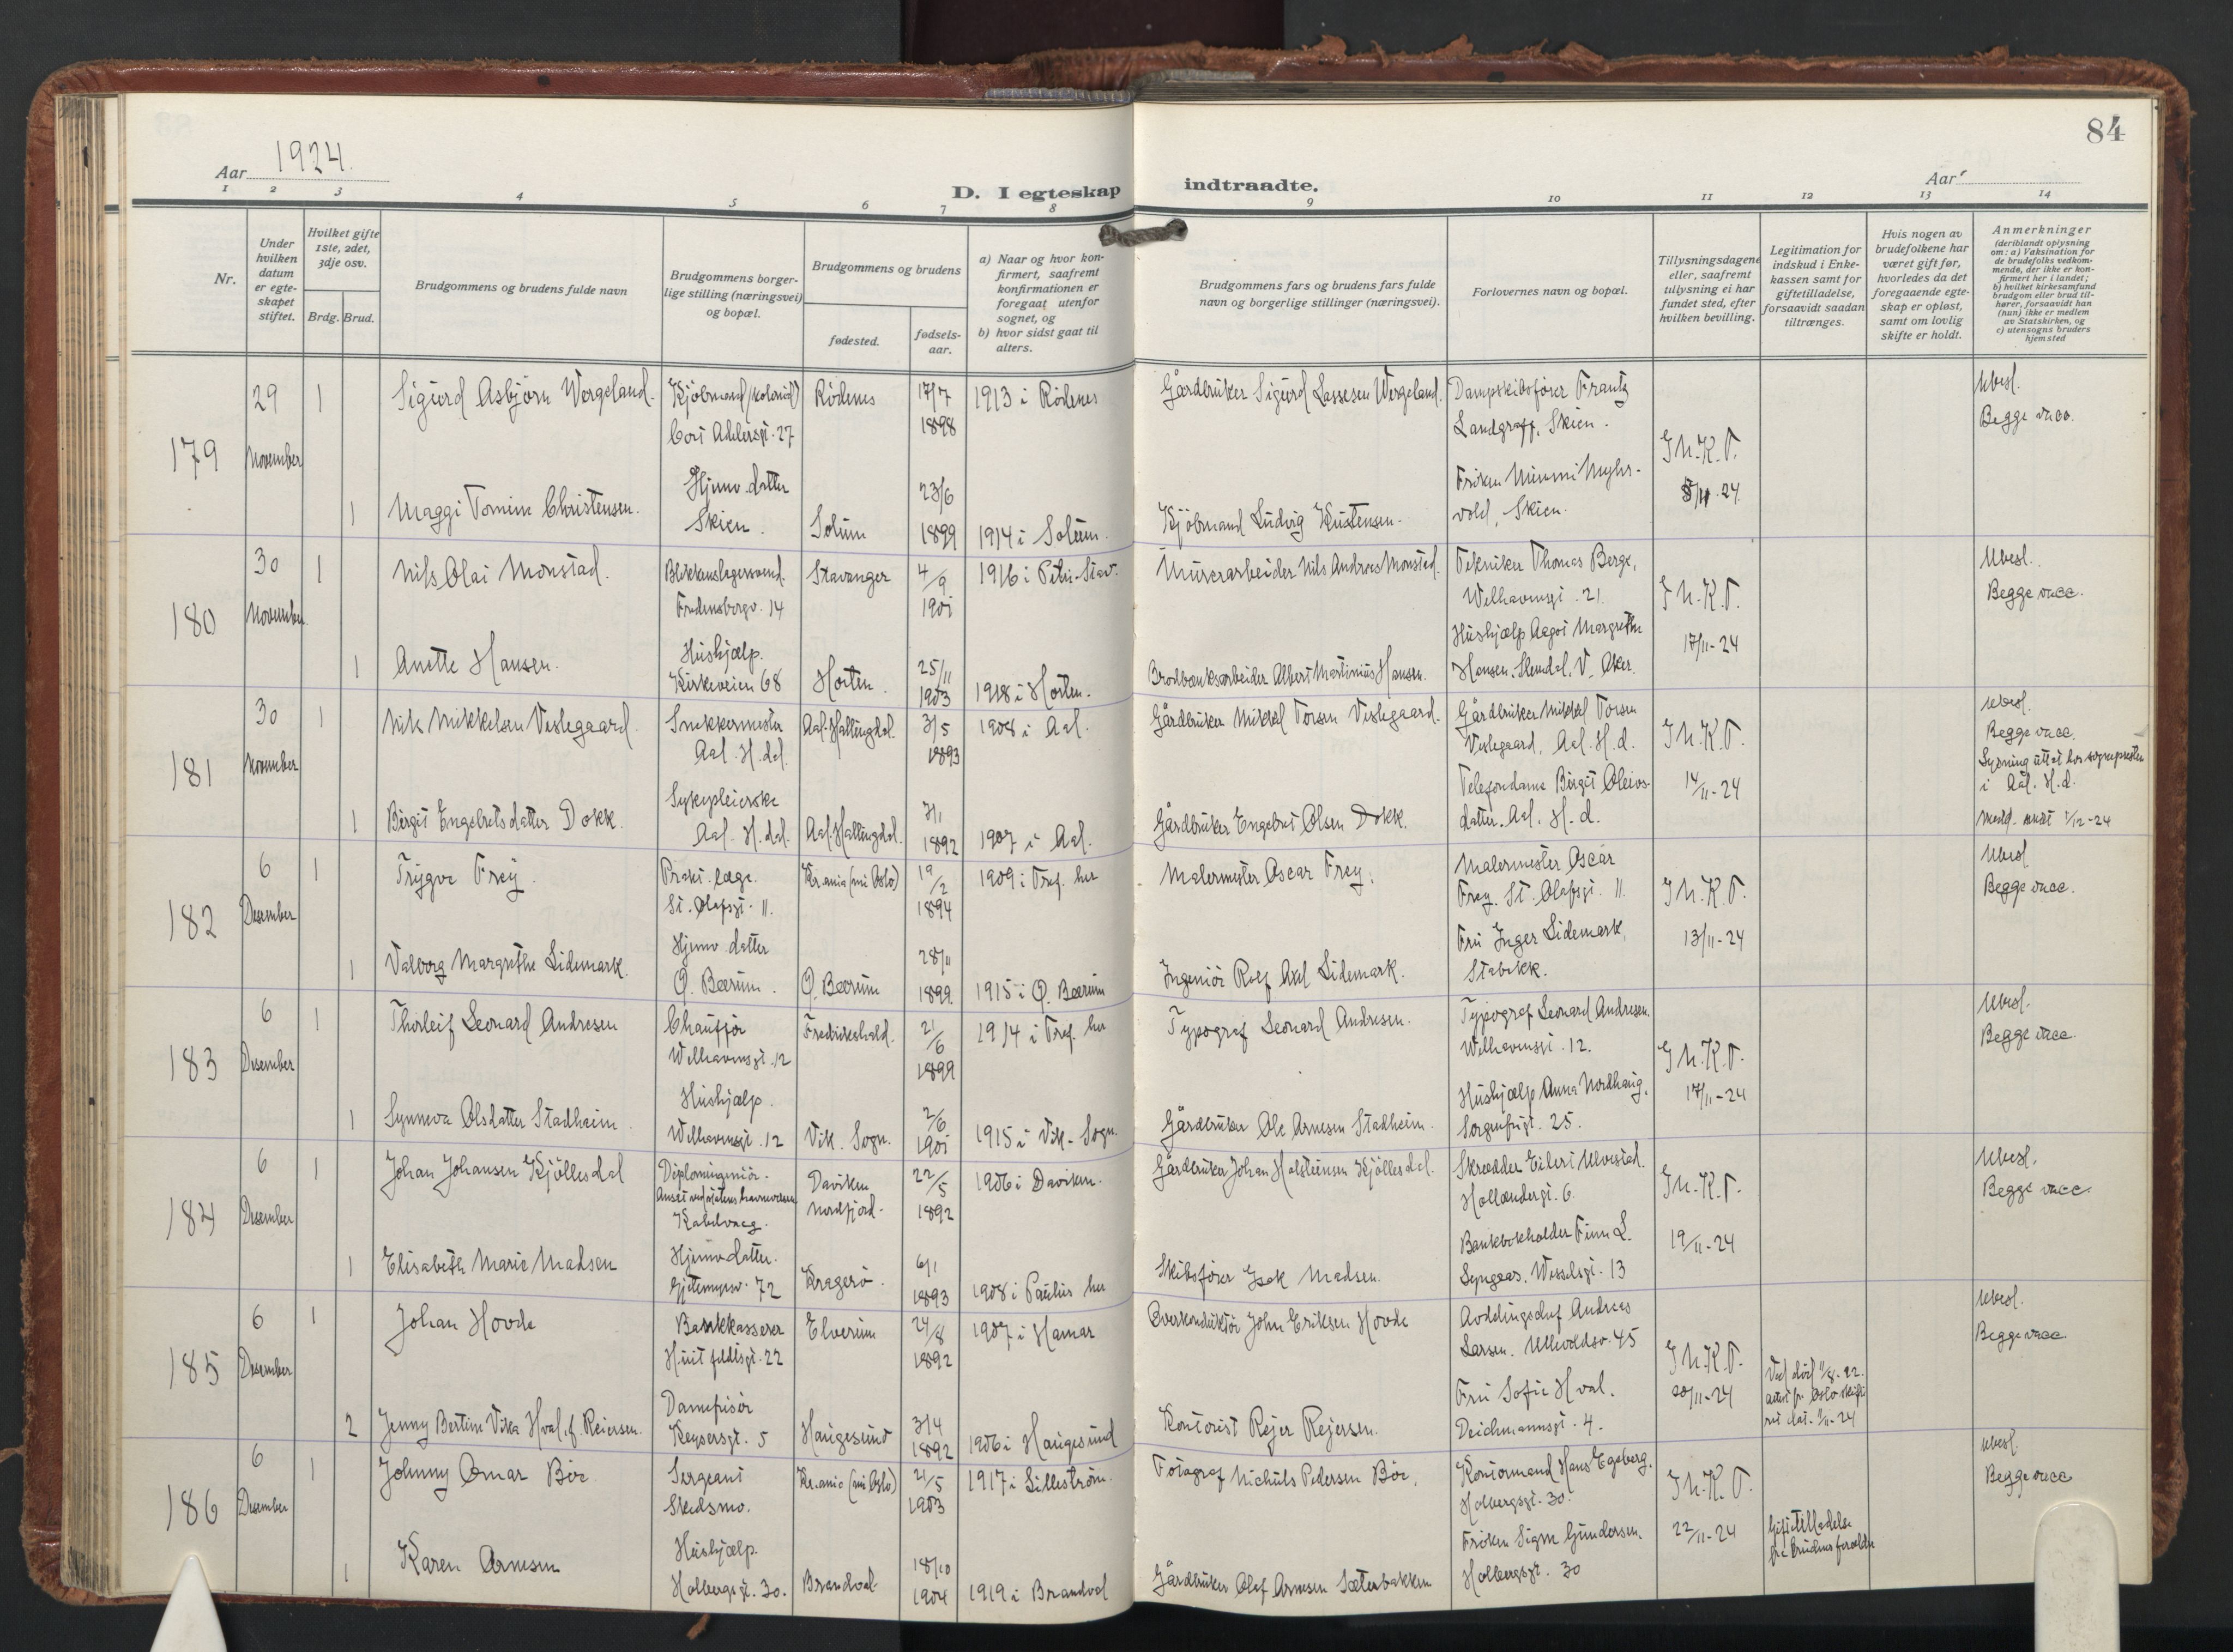 84
Aar 1924.
D. I egteskap indtraadte.
Aar
1 2 3 4 5 6 7 8 9 10 11 12 13 14
Nr.
Under hvilken datum er egteskapet stiftet.
Hvilket gifte 1ste, 2det, 3dje osv.
Brdg. Brud.
Brudgommens og brudens fulde navn
Brudgommens borgerlige stilling (næringsvei) og bopæl.
Brudgommens og brudens
fødested.
fødselsaar.
a) Naar og hvor konfirmert, saafremt konfirmationen er foregaat utenfor sognet, og
b) hvor sidst gaat til alters.
Brudgommens fars og brudens fars fulde navn og borgerlige stillinger (næringsvei).
Forlovernes navn og bopæl.
Tillysningsdagene eller, saafremt tillysning ei har fundet sted, efter hvilken bevilling.
Legitimation for indskud i Enkekassen samt for giftetilladelse, forsaavidt saadan tiltrænges.
Hvis nogen av brudefolkene har været gift før, hvorledes da det foregaaende egteskap er opløst, samt om lovlig skifte er holdt.
Anmerkninger
(deriblandt oplysning om: a) Vaksination for de brudefolks vedkommende, der ikke er konfirmert her i landet; b) hvilket kirkesamfund brudgom eller brud tilhører, forsaavidt han (hun) ikke er medlem av Statskirken, og c) utensogns bruders hjemsted
179
29 November
1 Sigurd Asbjørn Wergeland.
Kjøbmand (kolonial)
Cort Adelersgt. 27
Rødenes
17/7 1898
1913 i Rødenes
Gårdbruker Sigurd Lassesen Wergeland.
Dampskibsfører Frantz
Landgraff, Skien.
J.N.K.T.
24
Ubesl.
Begge vacc.
1 Maggi Tomine Christensen.
Hjemv. datter
Skien.
Solum
23/6 1899
1914 i Solum.
Kjøbmand Ludvig Kristensen.
Frøken Mimmi Myhrvold, Skien.
180
30 November
1 Nils Olai Monstad.
Blikkenslagersvend.
Fredensborgv. 14
Stavanger
4/9 1901
1916 i Petri-Stav.
Murerarbeider Nils Andreas Monstad.
Tekniker Thomas Berge,
Welhavensgt. 21.
J.N.K.T.
17/11-24
Ubesl.
Begge vacc.
1 Anette Hansen.
Hushjælp.
Kirkeveien 68
Horten.
25/11 1903
1918 i Horten.
Albert Martinius Hansen.
Hushjælp Aagot Margrethe
Hansen. V. Aker.
181
30 November
1 Nils Mikkelsen Veslegaard.
Snekkermester
Aal. H.dal.
Aal. Hallingdal.
3/5 1893
1908 i Aal.
Gårdbruker Mikkel Torsen Veslegaard.
Gårdbruker Mikkel Torsen
Veslegaard, Aal. H.d.
J.N.K.T.
14/11-24
Ubesl.
Begge vacc.
Lysning uttat hos sognepresten
i Aal. H.d.
1 Birgit Engebretsdatter Dokk.
Sykepleierske
Aal. H.dal.
Aal. Hallingdal.
1892
1907 i Aal.
Gårdbruker Engebret Olsen Dokk.
Telefondame Birgit Oleivsdatter. Aal. H.d.
182
6 Desember
1 Trygve Frey.
Prakt. læge.
St. Olafsgt. 11.
Kr.ania (nu Oslo)
19/2 1894
1909 i Tref. her
Malermester Oscar Frey.
Malermester Oscar
Frey. St. Olafsgt. 11.
J.N.K.T.
13/11-24
Ubesl.
Begge vacc.
1 Valborg Margrethe Lidemark.
Hjemv. datter
Ø. Bærum.
Ø. Bærum
28/11 1899
1915 i Ø. Bærum
Ingeniør Rolf Axel Lidemark.
Fru Inger Lidemark,
Stabekk.
183
6 Desember
1 Thorleif Leonard Andresen
Chauffør
Welhavensgt. 12
Fredrikshald.
21/6 1899
1914 i Tref. her
Typograf Leonard Andresen.
Typograf Leonard Andresen.
Welhavensgt. 12.
J.N.K.T.
17/11-24
Ubesl.
Begge vacc.
1 Synneva Olsdatter Stadheim.
Hushjælp.
Welhavensgt. 12
Vik. Sogn.
2/6 1901
1915 i Vik-Sogn.
Gårdbruker Ole Arnesen Stadheim.
Hushjælp Anna Nordhaug.
Sorgenfrigt. 25.
184
6 Desember
1 Johan Johansen Kjøllesdal
Diplomingeniør.
Kabelvaag.
Daviken
Nordfjord.
22/5 1892
1906 i Daviken.
Gårdbruker Johan Holsteinsen Kjøllesdal.
Skrædder Eilert Ulvestad.
Hollændergt. 6.
J.N.K.T.
19/11-24
Ubesl.
Begge vacc.
1 Elisabeth Marie Madsen
Hjemv. datter.
Gjetemyrsv. 72
Kragerø.
6/1 1893
1908 i Paulus her
Skibsfører Isak Madsen.
Bankbokholder Finn L.
Syngaas. Wesselsgt. 13
185
6 Desember
1 Johan Hovde
Bankkasserer
Huitfeldtsgt. 22
Elverum
24/8 1892
1907 i Hamar
Overkonduktør John Eriksen Hovde
Avdelingschef Andreas
Larsen. Ullevoldsv. 45
J.N.K.T.
20/11-24
Ubesl.
Begge vacc.
2 Jenny Bertine Vika Hval, f. Reiersen.
Damefrisør
Keysersgt. 5
Haugesund
3/4 1892
1906 i Haugesund
Kontorist Rejer Rejersen.
Fru Sofie Hval.
Deichmannsgt. 4.
186
6 Desember
1 Johnny Omar Bøe
Sergeant
Skedsmo.
Kr.ania (nu Oslo)
21/5 1903
1917 i Lillestrøm.
Fotograf Nichuls Pedersen Bøe.
Kontormand Hans Egeberg.
Holbergsgt. 30.
J.N.K.T.
22/11-24
Giftetilladelse
fra brudens forældre
Ubesl.
Begge vacc
1 Karen Arnesen
Hushjælp.
Holbergsgt. 30.
Brandval
18/10 1904
1919 i Brandval
Gårdbruker Olaf Arnesen Sæterbakken
Frøken Signe Gundersen.
Holbergsgt. 30